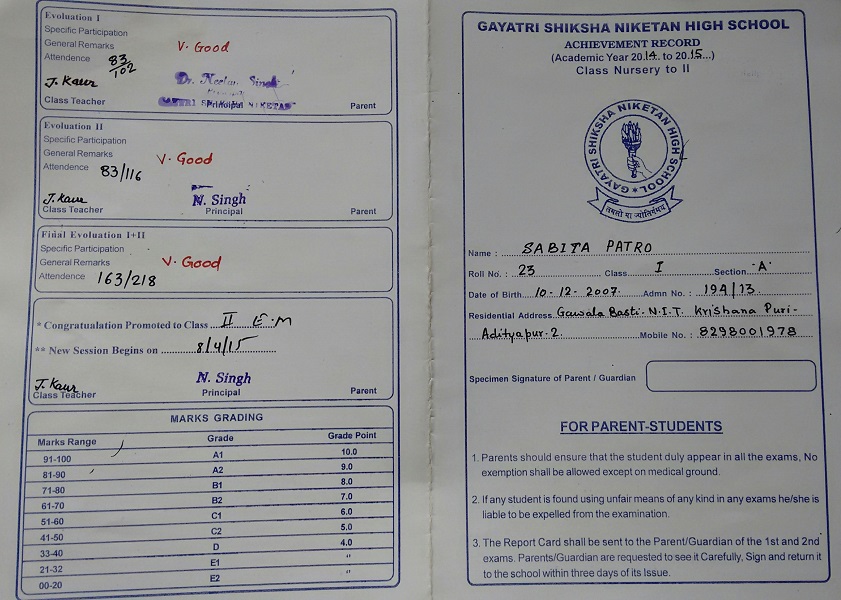 Evaluation I
Specific Participation
General Remarks V. Good
Attendence 83/102
J. Kaur
Class Teacher Principal Parent
Evaluation II
Specific Participation
General Remarks V. Good
Attendence 83/116
J. Kaur N. Singh
Class Teacher Principal
Final Evaluation I+II
Specific Participation
General Remarks V. Good
Attendence 163/218
* Congratualation Promoted to Class II E.M
** New Session Begins on 8/4/15
J. Kaur N. Singh
Class Teacher Principal Parent
MARKS GRADING
Marks Range Grade Grade Point
91-100 A1 10.0
81-90 A2 9.0
71-80 B1 8.0
61-70 B2 7.0
51-60 C1 6.0
41-50 C2 5.0
33-40 D 4.0
21-32 E1 "
00-20 E2 "
GAYATRI SHIKSHA NIKETAN HIGH SCHOOL
ACHIEVEMENT RECORD
(Academic Year 2014 to 2015)
Class Nursery to II
GAYATRI SHIKSHA NIKETAN HIGH SCHOOL
तमसो मा ज्योतिर्गमय
Name : SABITA PATRO
Roll No. : 23 Class I Section 'A'
Date of Birth 10-12-2007 Admn No. : 194/13
Residential Address Gawala Basti. N.I.T. Krishana Puri-
Adityapur-2. Mobile No. : 8298001978
Specimen Signature of Parent / Guardian
FOR PARENT-STUDENTS
1. Parents should ensure that the student duly appear in all the exams, No
exemption shall be allowed except on medical ground.
2. If any student is found using unfair means of any kind in any exams he/she is
liable to be expelled from the examination.
3. The Report Card shall be sent to the Parent/Guardian of the 1st and 2nd
exams. Parents/Guardian are requested to see it Carefully, Sign and return it
to the school within three days of its Issue.